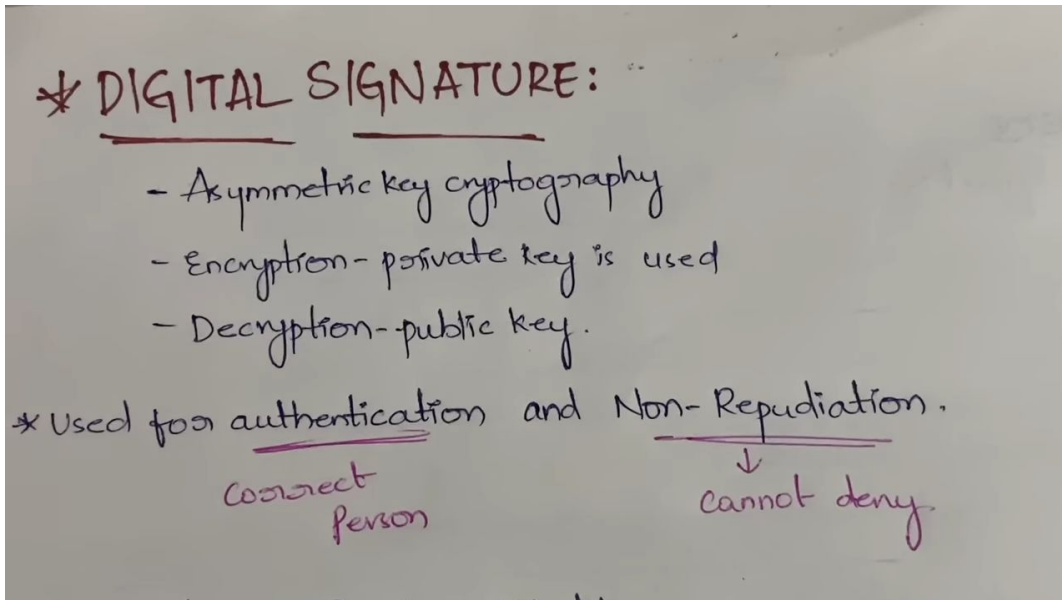 * DIGITAL SIGNATURE:
- Asymmetric key cryptography
- Encryption - private key is used
- Decryption - public key.
* Used for authentication and Non-Repudiation.
correct person
↓ cannot deny.